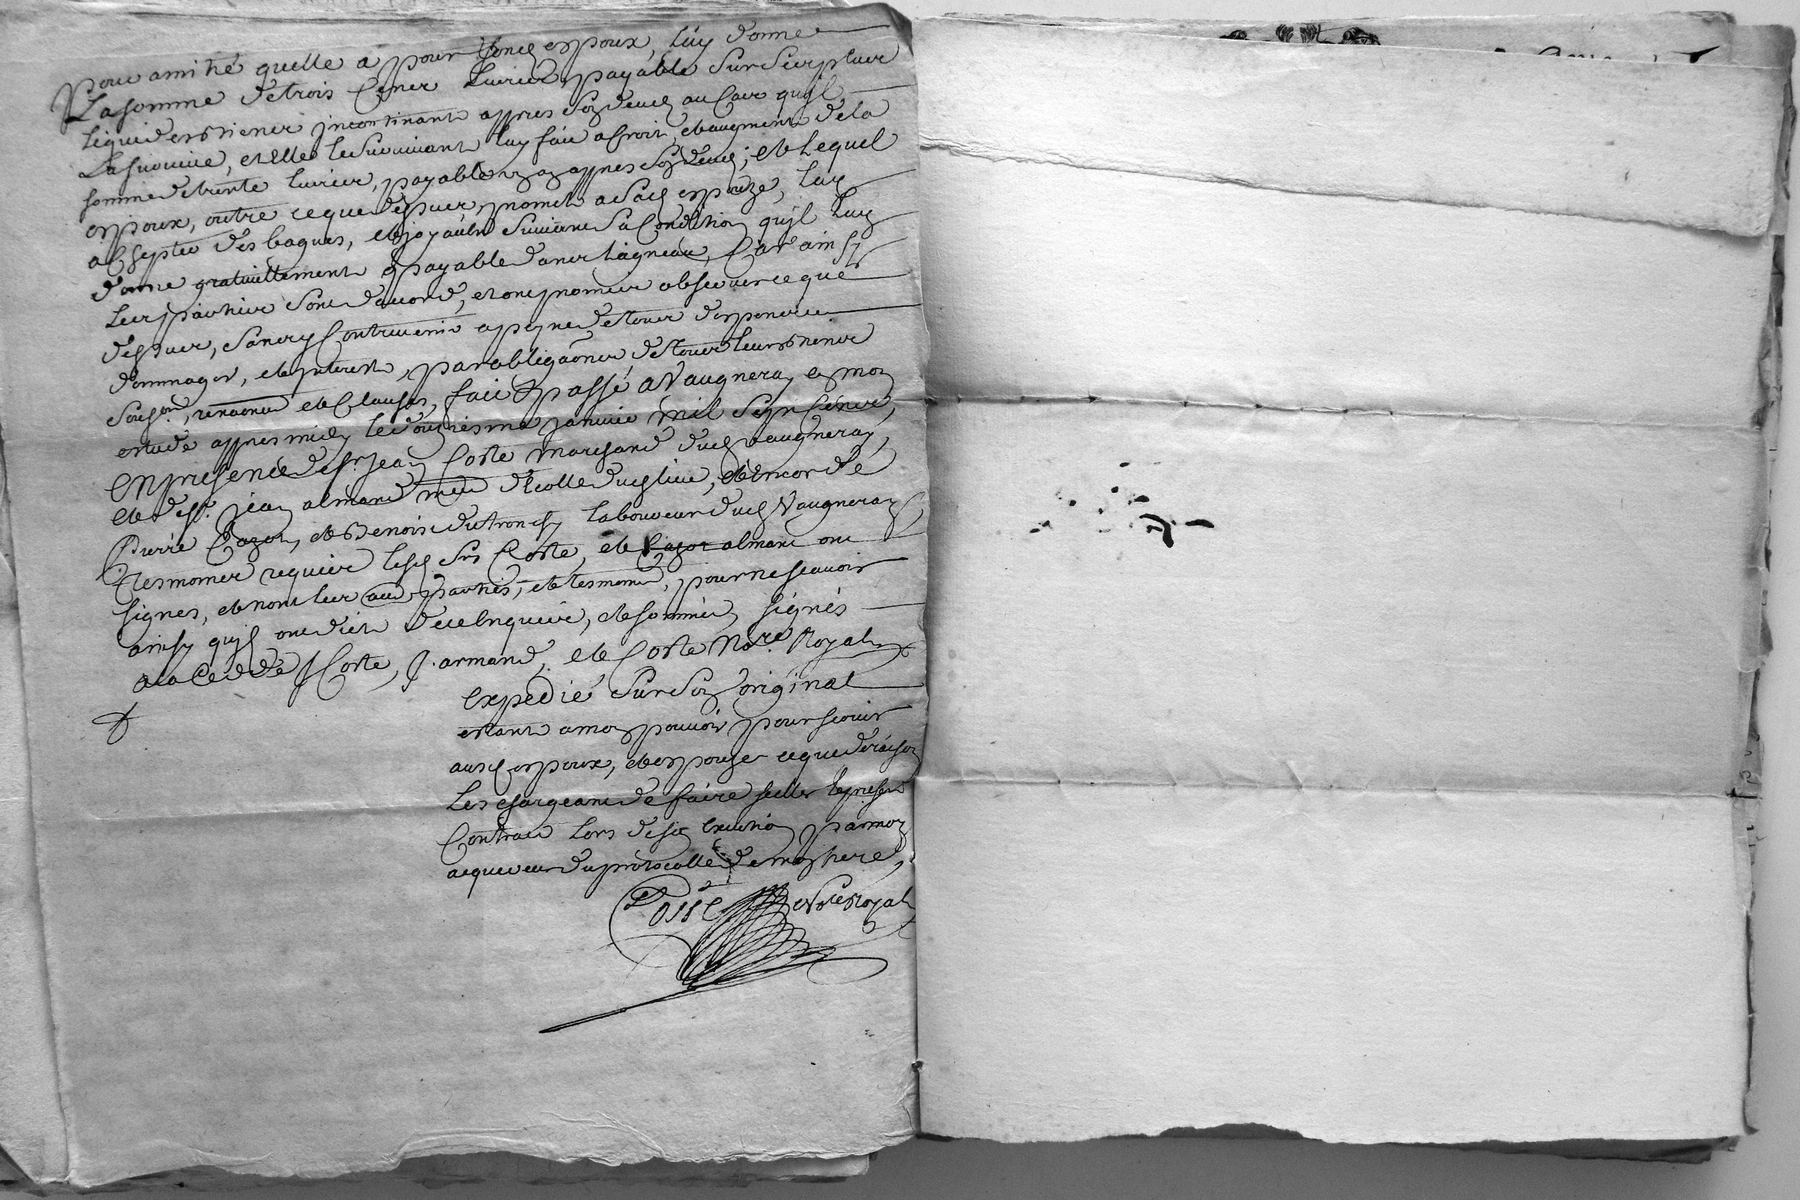 pour amitié quelle a pour sond espoux, luy donne
La somme de trois Cents Livres, payable sur ses plus
liquides biens incontinant appres son deces au Cas quil
La survive, et Elle le survivant luy fait assoir, et augment de la
somme de trente livres, payable un an appres son deces; et Lequel
espoux, outre ce que dessus, promet a sad espouze, luy
achepter des bagues, et joyaux suivant sa Condition quil luy
donne gratuittement payable dans Lagneau, Car ainsy
Les parties sont daccord, et ont promis observer ce que
dessus, sans y Contrevenir a peyne de tous despens
dommages, et interest, par obligaons de tous leurs biens
soubson, renaons et Clauses, fait & passé a Vaugneray en mon
estude appres midy le douziesme janvie mil sept Cents,
En presence de sr Jean Coste marchand dud vaugneray,
et de sr. jean almand me descolle dud lieu, et encor de
Pierre Cazot, et Benoist dutroncy laboureur dud Vaugneray
tesmoins requis lesd srs Coste, et Cazot almand ont
signes, et non les aud parties, et tesmoins, pour ne scavoir
ainsy quils ont dict de ce Enquis, et sommés signés
a la Cedde J Coste, J. armand, et Coste Nore. Royal
Expedié sur son original
estant a mon pouvoir pour servir
ausd espoux, et espouse ce que de raison
Les chargeant de faire seeller le present
Contract lors de son Execution par moy
acquereur du protocolle de mon frere,
Coste Nore Royal